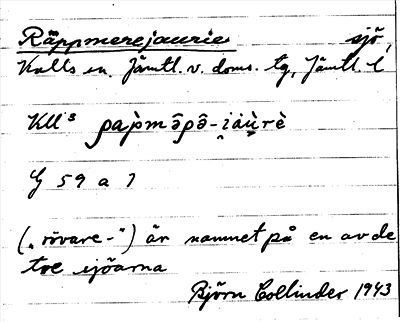 Räppmerejaurie sjö,
Kalls sn. Jämtl. v. doms. tg, Jämtl. l
KU³ pàpm ə̂pə̂-i̯àu̯rè
G 59 a 7
(„rövare-“) är namnet på en av de
tre sjöarna
Björn Collinder 1943